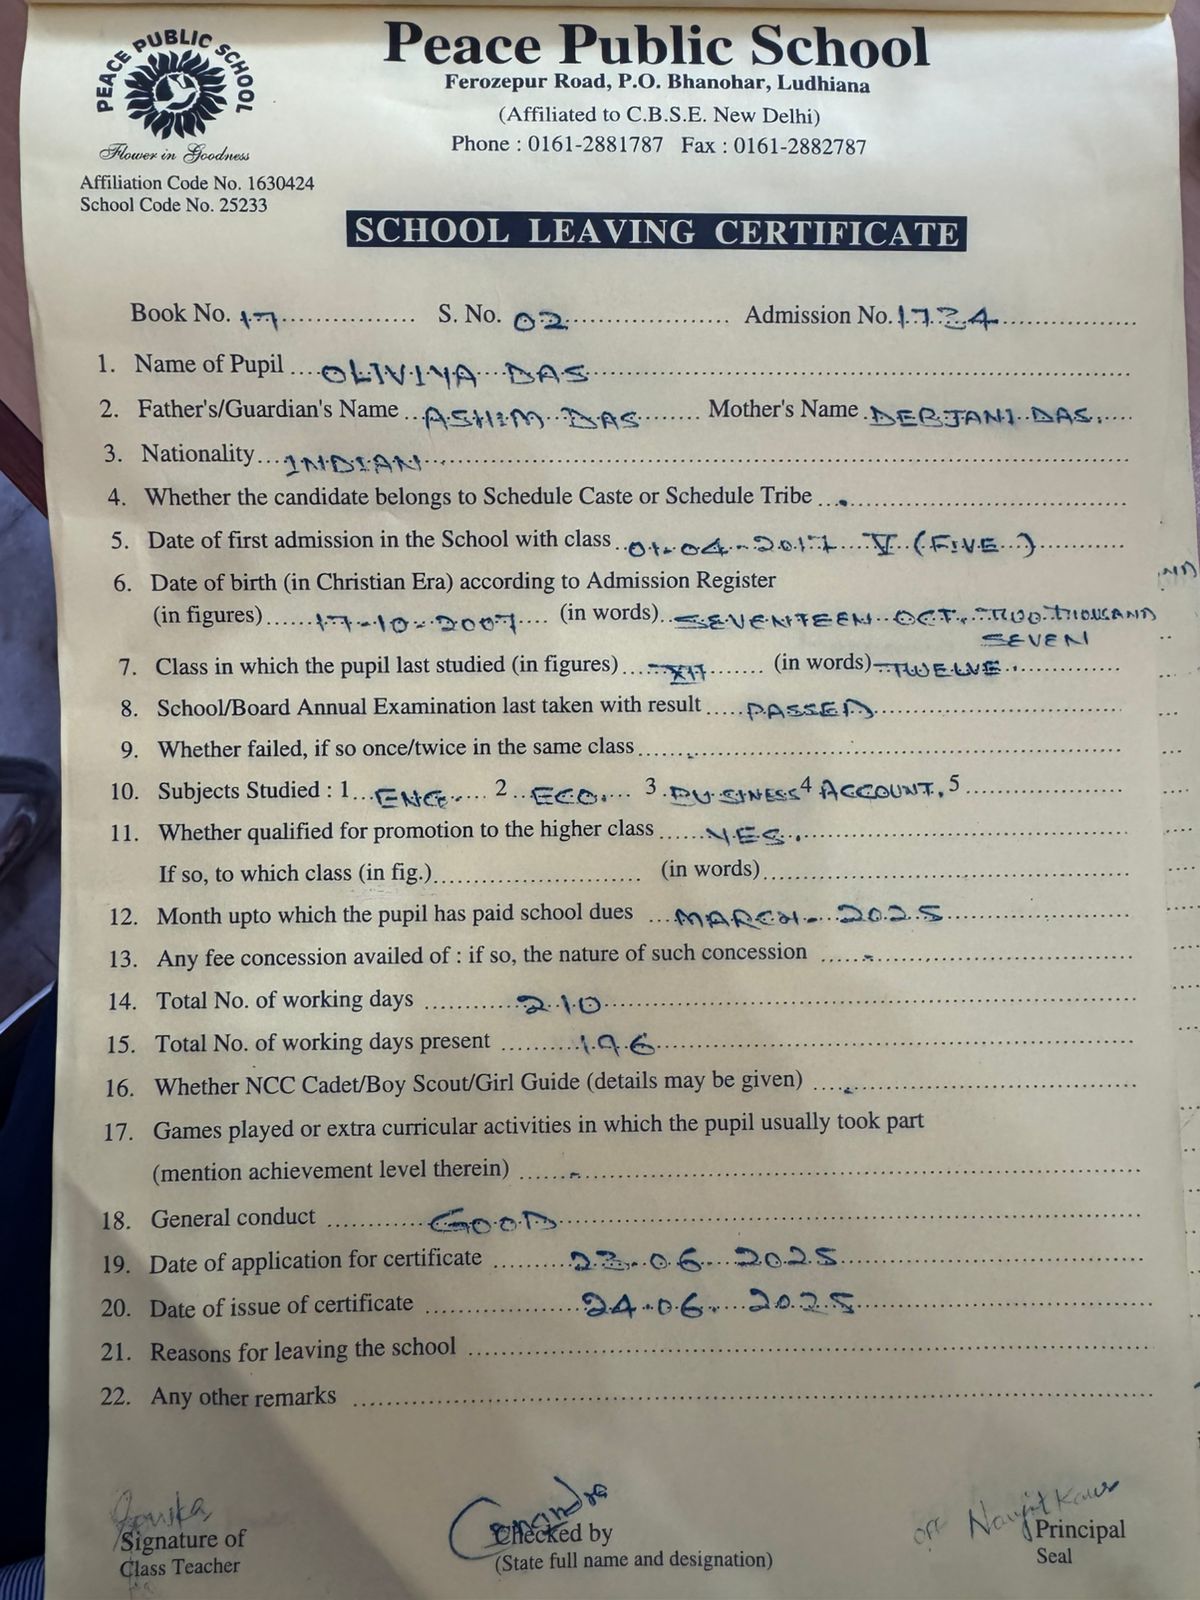 PEACE PUBLIC SCHOOL
Flower in Goodness
Affiliation Code No. 1630424
School Code No. 25233
Peace Public School
Ferozepur Road, P.O. Bhanohar, Ludhiana
(Affiliated to C.B.S.E. New Delhi)
Phone : 0161-2881787 Fax : 0161-2882787
SCHOOL LEAVING CERTIFICATE
Book No. 17 S. No. 02 Admission No. 1734
1. Name of Pupil OLIVIYA DAS
2. Father's/Guardian's Name ASHIM DAS Mother's Name DEBJANI DAS.
3. Nationality INDIAN
4. Whether the candidate belongs to Schedule Caste or Schedule Tribe -
5. Date of first admission in the School with class 01-04-2017 V (FIVE)
6. Date of birth (in Christian Era) according to Admission Register
(in figures) 17-10-2007 (in words) SEVENTEEN OCT. TWO THOUSAND
SEVEN
7. Class in which the pupil last studied (in figures) XII (in words) TWELVE.
8. School/Board Annual Examination last taken with result PASSED
9. Whether failed, if so once/twice in the same class -
10. Subjects Studied : 1 ENG. 2 ECO. 3 BUSINESS 4 ACCOUNT. 5
11. Whether qualified for promotion to the higher class YES.
If so, to which class (in fig.) (in words)
12. Month upto which the pupil has paid school dues MARCH - 2025
13. Any fee concession availed of : if so, the nature of such concession -
14. Total No. of working days 210
15. Total No. of working days present 196
16. Whether NCC Cadet/Boy Scout/Girl Guide (details may be given) -
17. Games played or extra curricular activities in which the pupil usually took part
(mention achievement level therein) -
18. General conduct GOOD
19. Date of application for certificate 23-06-2025
20. Date of issue of certificate 24-06-2025
21. Reasons for leaving the school
22. Any other remarks
Navjit Kaur
Signature of Checked by Principal
Class Teacher (State full name and designation) Seal